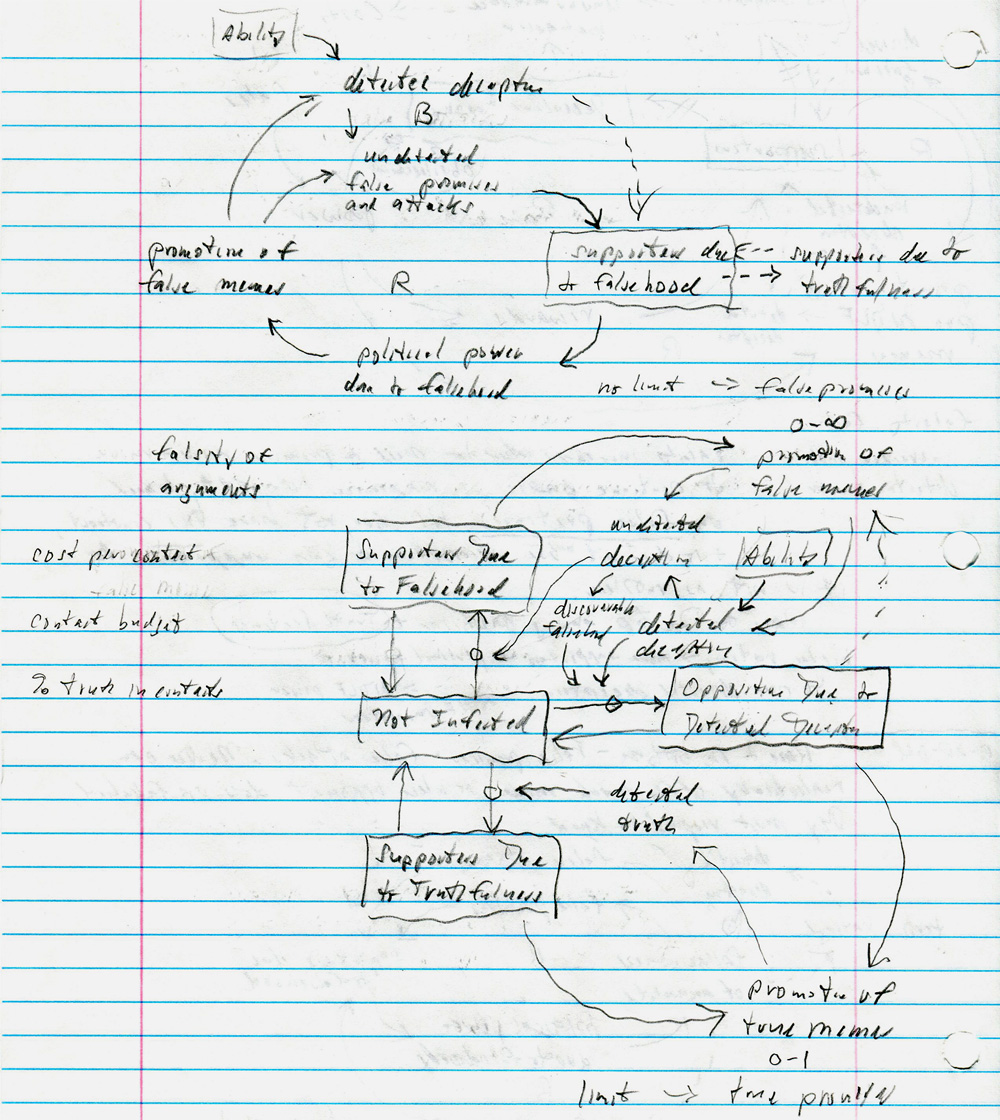 Ability
detected deception
B
undetected
false promises
and attacks
promotion of
false memes
R
supporters due
to falsehood
supporters due to
truthfulness
political power
due to falsehood
no limit → false promises
0-∞
falsity of
arguments
promotion of
false memes
undetected
deception
Ability
Supporters Due
to Falsehood
cost per contact
discoverable
falsehood
detected
deception
contact budget
% truth in contacts
Not Infected
Opposition Due to
Detected Deception
detected
truth
Supporters Due
to Truthfulness
promotion of
true memes
0-1
limit → true promises